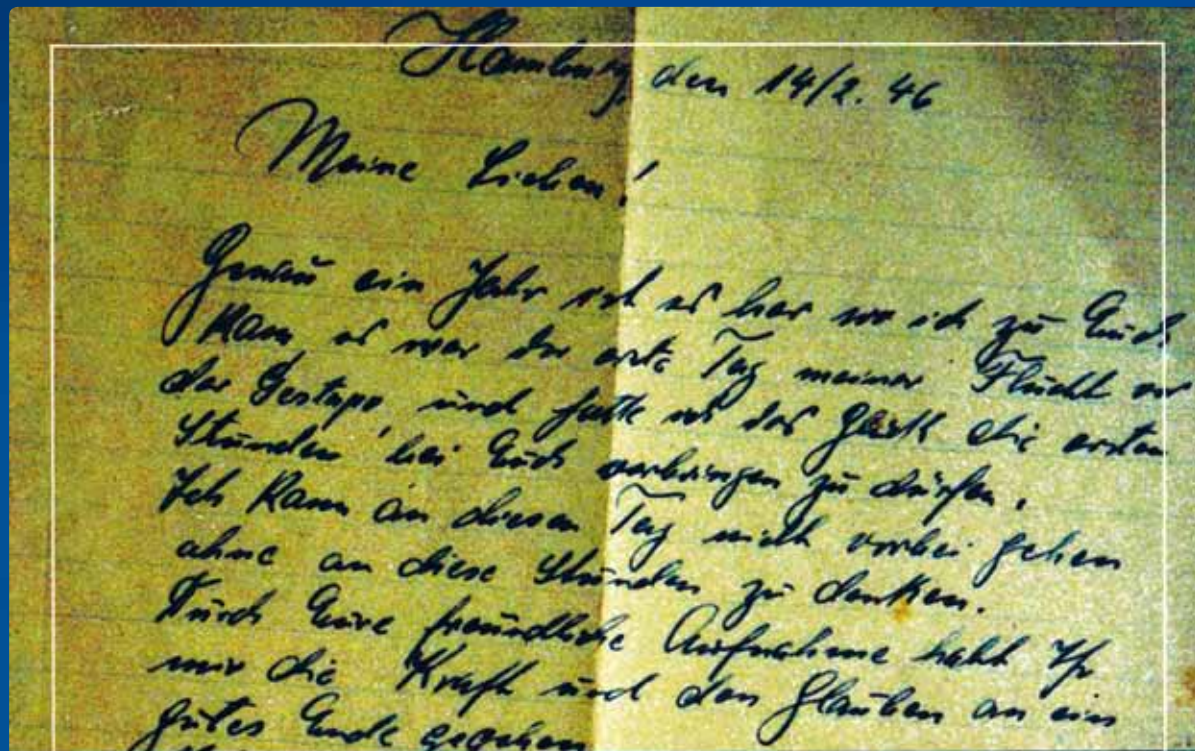 Hamburg, den 14/2. 46
Meine Lieben!
Genau ein Jahr ist es her wo ich zu Euch
kam, es war der erste Tag meiner Flucht vor
der Gestapo, und hatte ich das Glück die ersten
Stunden bei Euch verbringen zu dürfen.
Ich kann an diesen Tag nicht vorbei gehen
ohne an diese Stunden zu denken.
Durch Eure freundliche Aufnahme habt Ihr
mir die Kraft und den Glauben an ein
gutes Ende gegeben